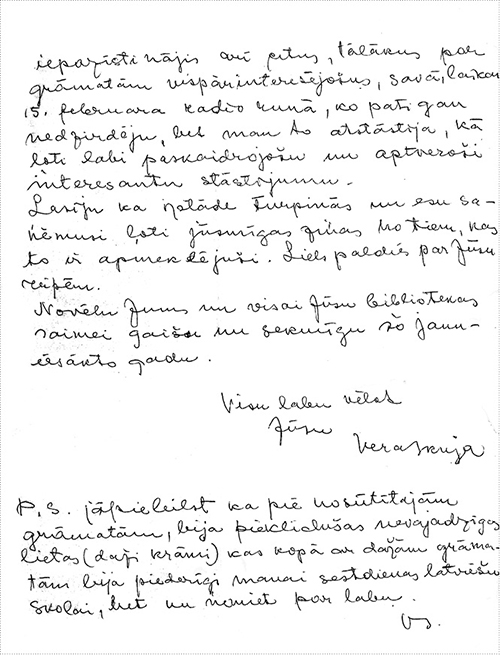 iepazīstinājis arī citus, tālākus par
grāmatām vispārinteresējošus, savā, laikam
15. februara radio runā, ko pati gan
nedzirdēju, bet man to atstāstija, kā
ļoti labi paskaidrojošu un aptverošu
interesantu stāstijumu.
Lasiju ka izstāde turpinās un esu sa-
ņēmusi ļoti jūsmīgas ziņas no tiem, kas
to ir apmeklējuši. Liels paldies par Jūsu
rūpēm.
Novēlu Jums un visai Jūsu bibliotekas
saimei gaišu un sekmīgu šo jaun-
iesākto gadu.
Visu labu vēlot
Jūsu
Vera Skuja
P.S. jāpieliekot ka pie nosūtītajām
grāmatām, bija pieklīdušas nevajadzīgas
lietas (daži krāmi) kas kopā ar dažām grāma-
tām bija piederīgi manai sestdienas latviešu
skolai, bet nu noniet par labu.
VS.